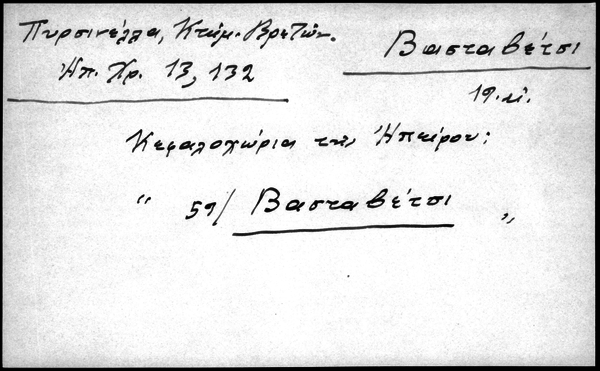 Πυρσινέλλα, Κτημ. Βρετών.
Ηπ. Χρ. 13, 132
Βασταβέτσι
19. αἰ.
Κεφαλοχώρια τῆς Ἠπείρου:
" 59/ Βασταβέτσι "